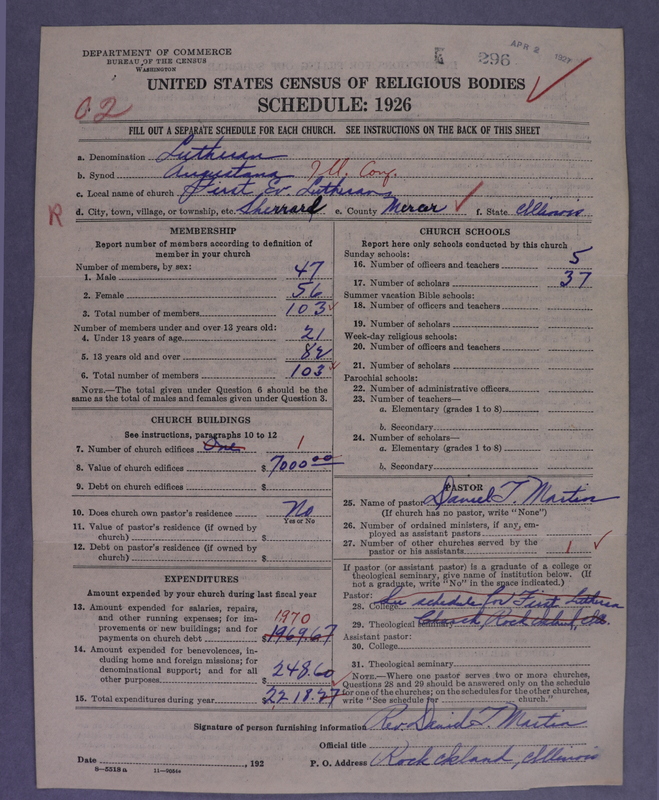 DEPARTMENT OF COMMERCE
BUREAU OF THE CENSUS
WASHINGTON
296
APR 2 1927
UNITED STATES CENSUS OF RELIGIOUS BODIES
SCHEDULE: 1926
02
FILL OUT A SEPARATE SCHEDULE FOR EACH CHURCH. SEE INSTRUCTIONS ON THE BACK OF THIS SHEET
a. Denomination Lutheran
b. Synod Augustana Ill. Conf.
c. Local name of church First Ev. Lutheran
R
d. City, town, village, or township, etc. Sherrard e. County Mercer f. State Illinois
MEMBERSHIP
Report number of members according to definition of
member in your church
Number of members, by sex:
1. Male 47
2. Female 56
3. Total number of members 103
Number of members under and over 13 years old:
4. Under 13 years of age 21
5. 13 years old and over 82
6. Total number of members 103
NOTE.—The total given under Question 6 should be the
same as the total of males and females given under Question 3.
CHURCH BUILDINGS
See instructions, paragraphs 10 to 12
7. Number of church edifices One 1
8. Value of church edifices $ 7000.00
9. Debt on church edifices $
10. Does church own pastor's residence No
Yes or No
11. Value of pastor's residence (if owned by
church) $
12. Debt on pastor's residence (if owned by
church) $
EXPENDITURES
Amount expended by your church during last fiscal year
13. Amount expended for salaries, repairs,
and other running expenses; for im-
provements or new buildings; and for
payments on church debt $ 1969.67
1970
14. Amount expended for benevolences, in-
cluding home and foreign missions; for
denominational support; and for all
other purposes $ 248.60
15. Total expenditures during year $ 2218.27
CHURCH SCHOOLS
Report here only schools conducted by this church
Sunday schools:
16. Number of officers and teachers 5
17. Number of scholars 37
Summer vacation Bible schools:
18. Number of officers and teachers
19. Number of scholars
Week-day religious schools:
20. Number of officers and teachers
21. Number of scholars
Parochial schools:
22. Number of administrative officers
23. Number of teachers—
a. Elementary (grades 1 to 8)
b. Secondary
24. Number of scholars—
a. Elementary (grades 1 to 8)
b. Secondary
PASTOR
25. Name of pastor Daniel T. Martin
(If church has no pastor, write "None")
26. Number of ordained ministers, if any, em-
ployed as assistant pastors
27. Number of other churches served by the
pastor or his assistants 1
If pastor (or assistant pastor) is a graduate of a college or
theological seminary, give name of institution below. (If
not a graduate, write "No" in the space indicated.)
Pastor:
28. College See schedule for First Lutheran
29. Theological seminary Church, Rock Island, Ill.
Assistant pastor:
30. College
31. Theological seminary
NOTE.—Where one pastor serves two or more churches,
Questions 28 and 29 should be answered only on the schedule
for one of the churches; on the schedules for the other churches,
write "See schedule for church."
Signature of person furnishing information Rev. Daniel T. Martin
Official title
Date , 192 P. O. Address Rock Island, Illinois
8—5518a 11—9051a